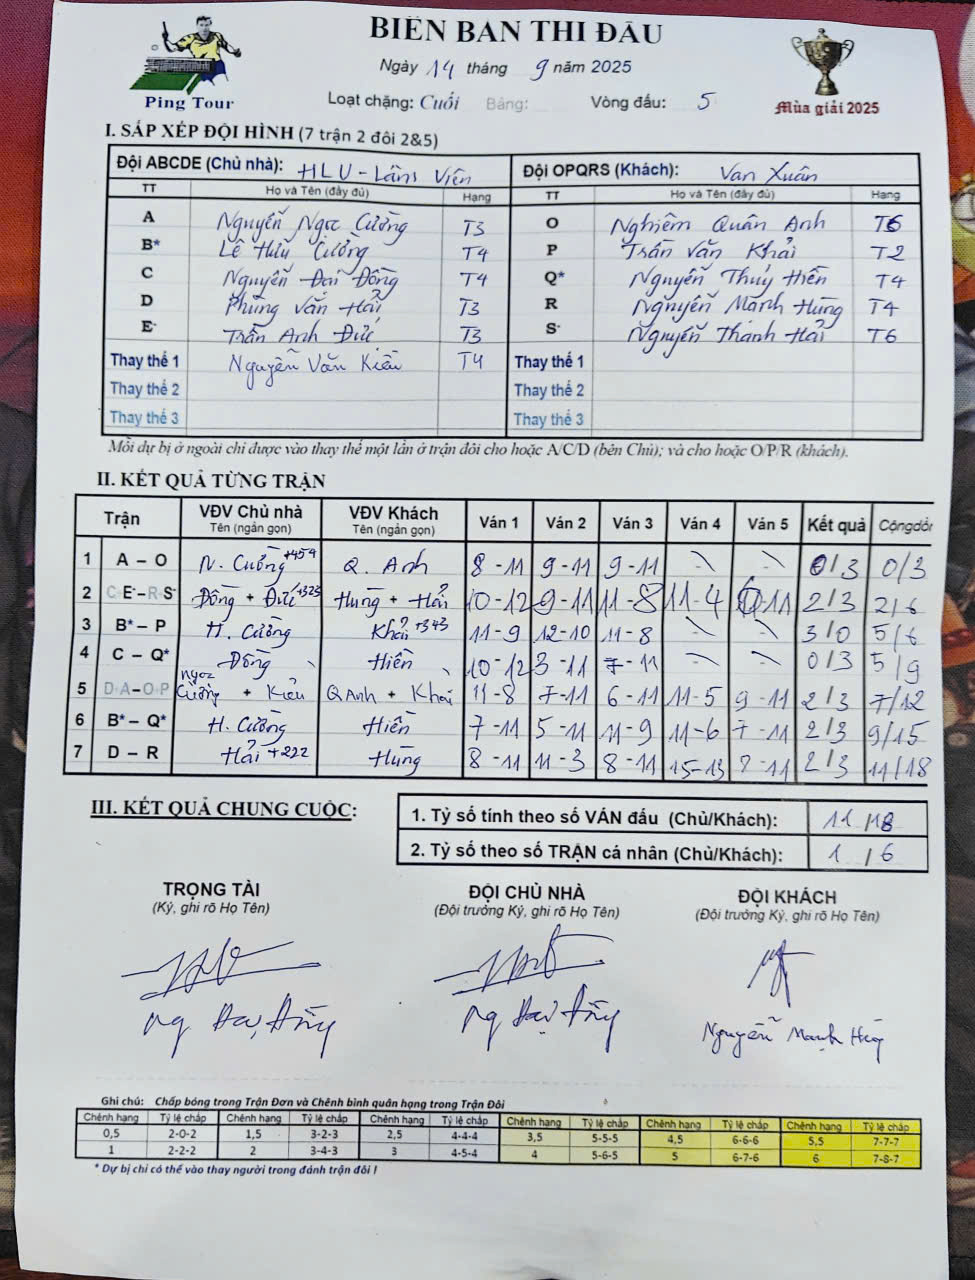 BIÊN BẢN THI ĐẤU
Ngày 14 tháng 9 năm 2025
Ping Tour
Loạt chặng: Cuối Bảng: Vòng đấu: 5
Mùa giải 2025
I. SẮP XẾP ĐỘI HÌNH (7 trận 2 đôi 2&5)
Đội ABCDE (Chủ nhà): HLU - Lâm Viên Đội OPQRS (Khách): Vạn Xuân
TT Họ và Tên (đầy đủ) Hạng TT Họ và Tên (đầy đủ) Hạng
A Nguyễn Ngọc Cường T3 O Nghiêm Quân Anh T6
B* Lê Hữu Cường T4 P Trần Văn Khải T2
C Nguyễn Đại Đồng T4 Q* Nguyễn Thúy Hiền T4
D Phùng Văn Hải T3 R Nguyễn Mạnh Hùng T4
E* Trần Anh Đức T3 S* Nguyễn Thanh Hải T6
Thay thế 1 Nguyễn Văn Kiều T4 Thay thế 1
Thay thế 2 Thay thế 2
Thay thế 3 Thay thế 3
Mỗi dự bị ở ngoài chỉ được vào thay thế một lần ở trận đôi cho hoặc A/C/D (bên Chủ); và cho hoặc O/P/R (khách).
II. KẾT QUẢ TỪNG TRẬN
Trận VĐV Chủ nhà Tên (ngắn gọn) VĐV Khách Tên (ngắn gọn) Ván 1 Ván 2 Ván 3 Ván 4 Ván 5 Kết quả Cộng dồn
1 A – O N. Cường +454 Q. Anh 8 - 11 9 - 11 9 - 11 \ \ 0/3 0/3
2 C+E*–R+S* Đồng + Đức +323 Hùng + Hải 10 - 12 9 - 11 11 - 8 11 - 4 - 11 2/3 2/6
3 B* – P H. Cường Khải +343 11 - 9 12 - 10 11 - 8 \ \ 3/0 5/6
4 C – Q* Đồng Hiền 10 - 12 3 - 11 7 - 11 \ \ 0/3 5/9
5 D+A–O+P Ngọc Cường + Kiều Q Anh + Khải 11 - 8 7 - 11 6 - 11 11 - 5 9 - 11 2/3 7/12
6 B* – Q* H. Cường Hiền 7 - 11 5 - 11 11 - 9 11 - 6 7 - 11 2/3 9/15
7 D – R Hải +222 Hùng 8 - 11 11 - 3 8 - 11 15 - 13 - 11 2/3 11/18
III. KẾT QUẢ CHUNG CUỘC:
1. Tỷ số tính theo số VÁN đấu (Chủ/Khách): 11 / 18
2. Tỷ số theo số TRẬN cá nhân (Chủ/Khách): 1 / 6
TRỌNG TÀI ĐỘI CHỦ NHÀ ĐỘI KHÁCH
(Ký, ghi rõ Họ Tên) (Đội trưởng Ký, ghi rõ Họ Tên) (Đội trưởng Ký, ghi rõ Họ Tên)
Ng Đại Đồng Ng Đại Đồng Nguyễn Mạnh Hùng
Ghi chú: Chấp bóng trong Trận Đơn và Chênh bình quân hạng trong Trận Đôi
Chênh hạng Tỷ lệ chấp Chênh hạng Tỷ lệ chấp Chênh hạng Tỷ lệ chấp Chênh hạng Tỷ lệ chấp Chênh hạng Tỷ lệ chấp Chênh hạng Tỷ lệ chấp
0,5 2-0-2 1,5 3-2-3 2,5 4-4-4 3,5 5-5-5 4,5 6-6-6 5,5 7-7-7
1 2-2-2 2 3-4-3 3 4-5-4 4 5-6-5 5 6-7-6 6 7-8-7
* Dự bị chỉ có thể vào thay người trong đánh trận đôi !